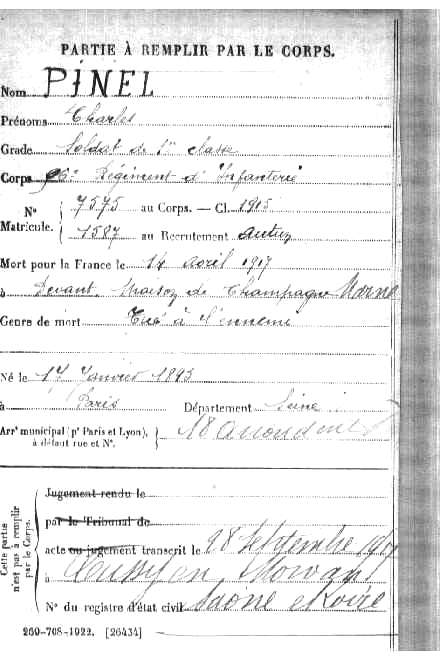 PARTIE À REMPLIR PAR LE CORPS.
Nom PINEL
Prénoms Charles
Grade Soldat de 1re classe
Corps 96e Régiment d'Infanterie
N° Matricule. { 7575 au Corps. — Cl. 1915
1587 au Recrutement Autun
Mort pour la France le 14 avril 1917
à Devant Maison de Champagne Marne
Genre de mort Tué à l'ennemi
Né le 17 Janvier 1895
à Paris Département Seine
Arrt municipal (pr Paris et Lyon), à défaut rue et N°. } 18
Cette partie n'est pas à remplir par le Corps.
Jugement rendu le
par le Tribunal de
acte ou jugement transcrit le 28 Septembre
à Cussy en Morvan
N° du registre d'état civil Saône et Loire
269-708-1922. [26434]